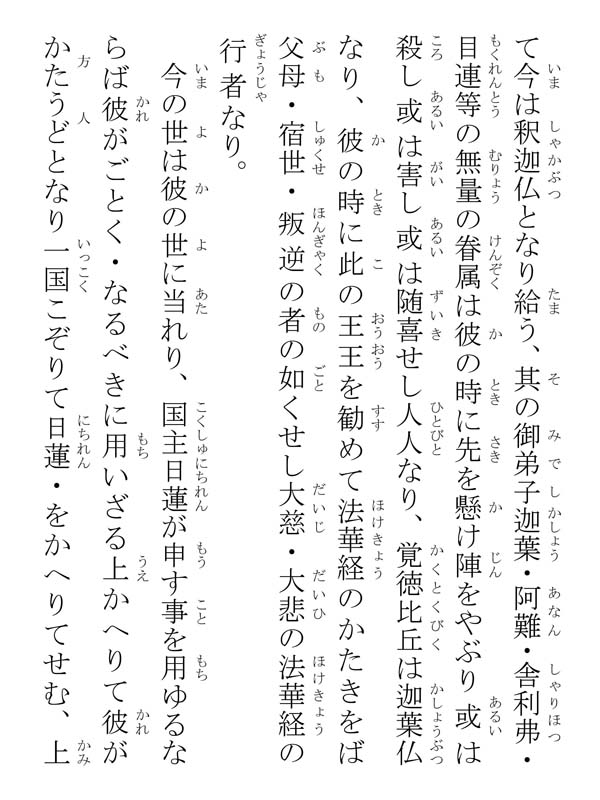 て今は釈迦仏となり給う、其の御弟子迦葉・阿難・舎利弗・
目連等の無量の眷属は彼の時に先を懸け陣をやぶり或は
殺し或は害し或は随喜せし人人なり、覚徳比丘は迦葉仏
なり、彼の時に此の王王を勧めて法華経のかたきをば
父母・宿世・叛逆の者の如くせし大慈・大悲の法華経の
行者なり。
今の世は彼の世に当れり、国主日蓮が申す事を用ゆるな
らば彼がごとく・なるべきに用いざる上かへりて彼が
かたうどとなり一国こぞりて日蓮・をかへりてせむ、上